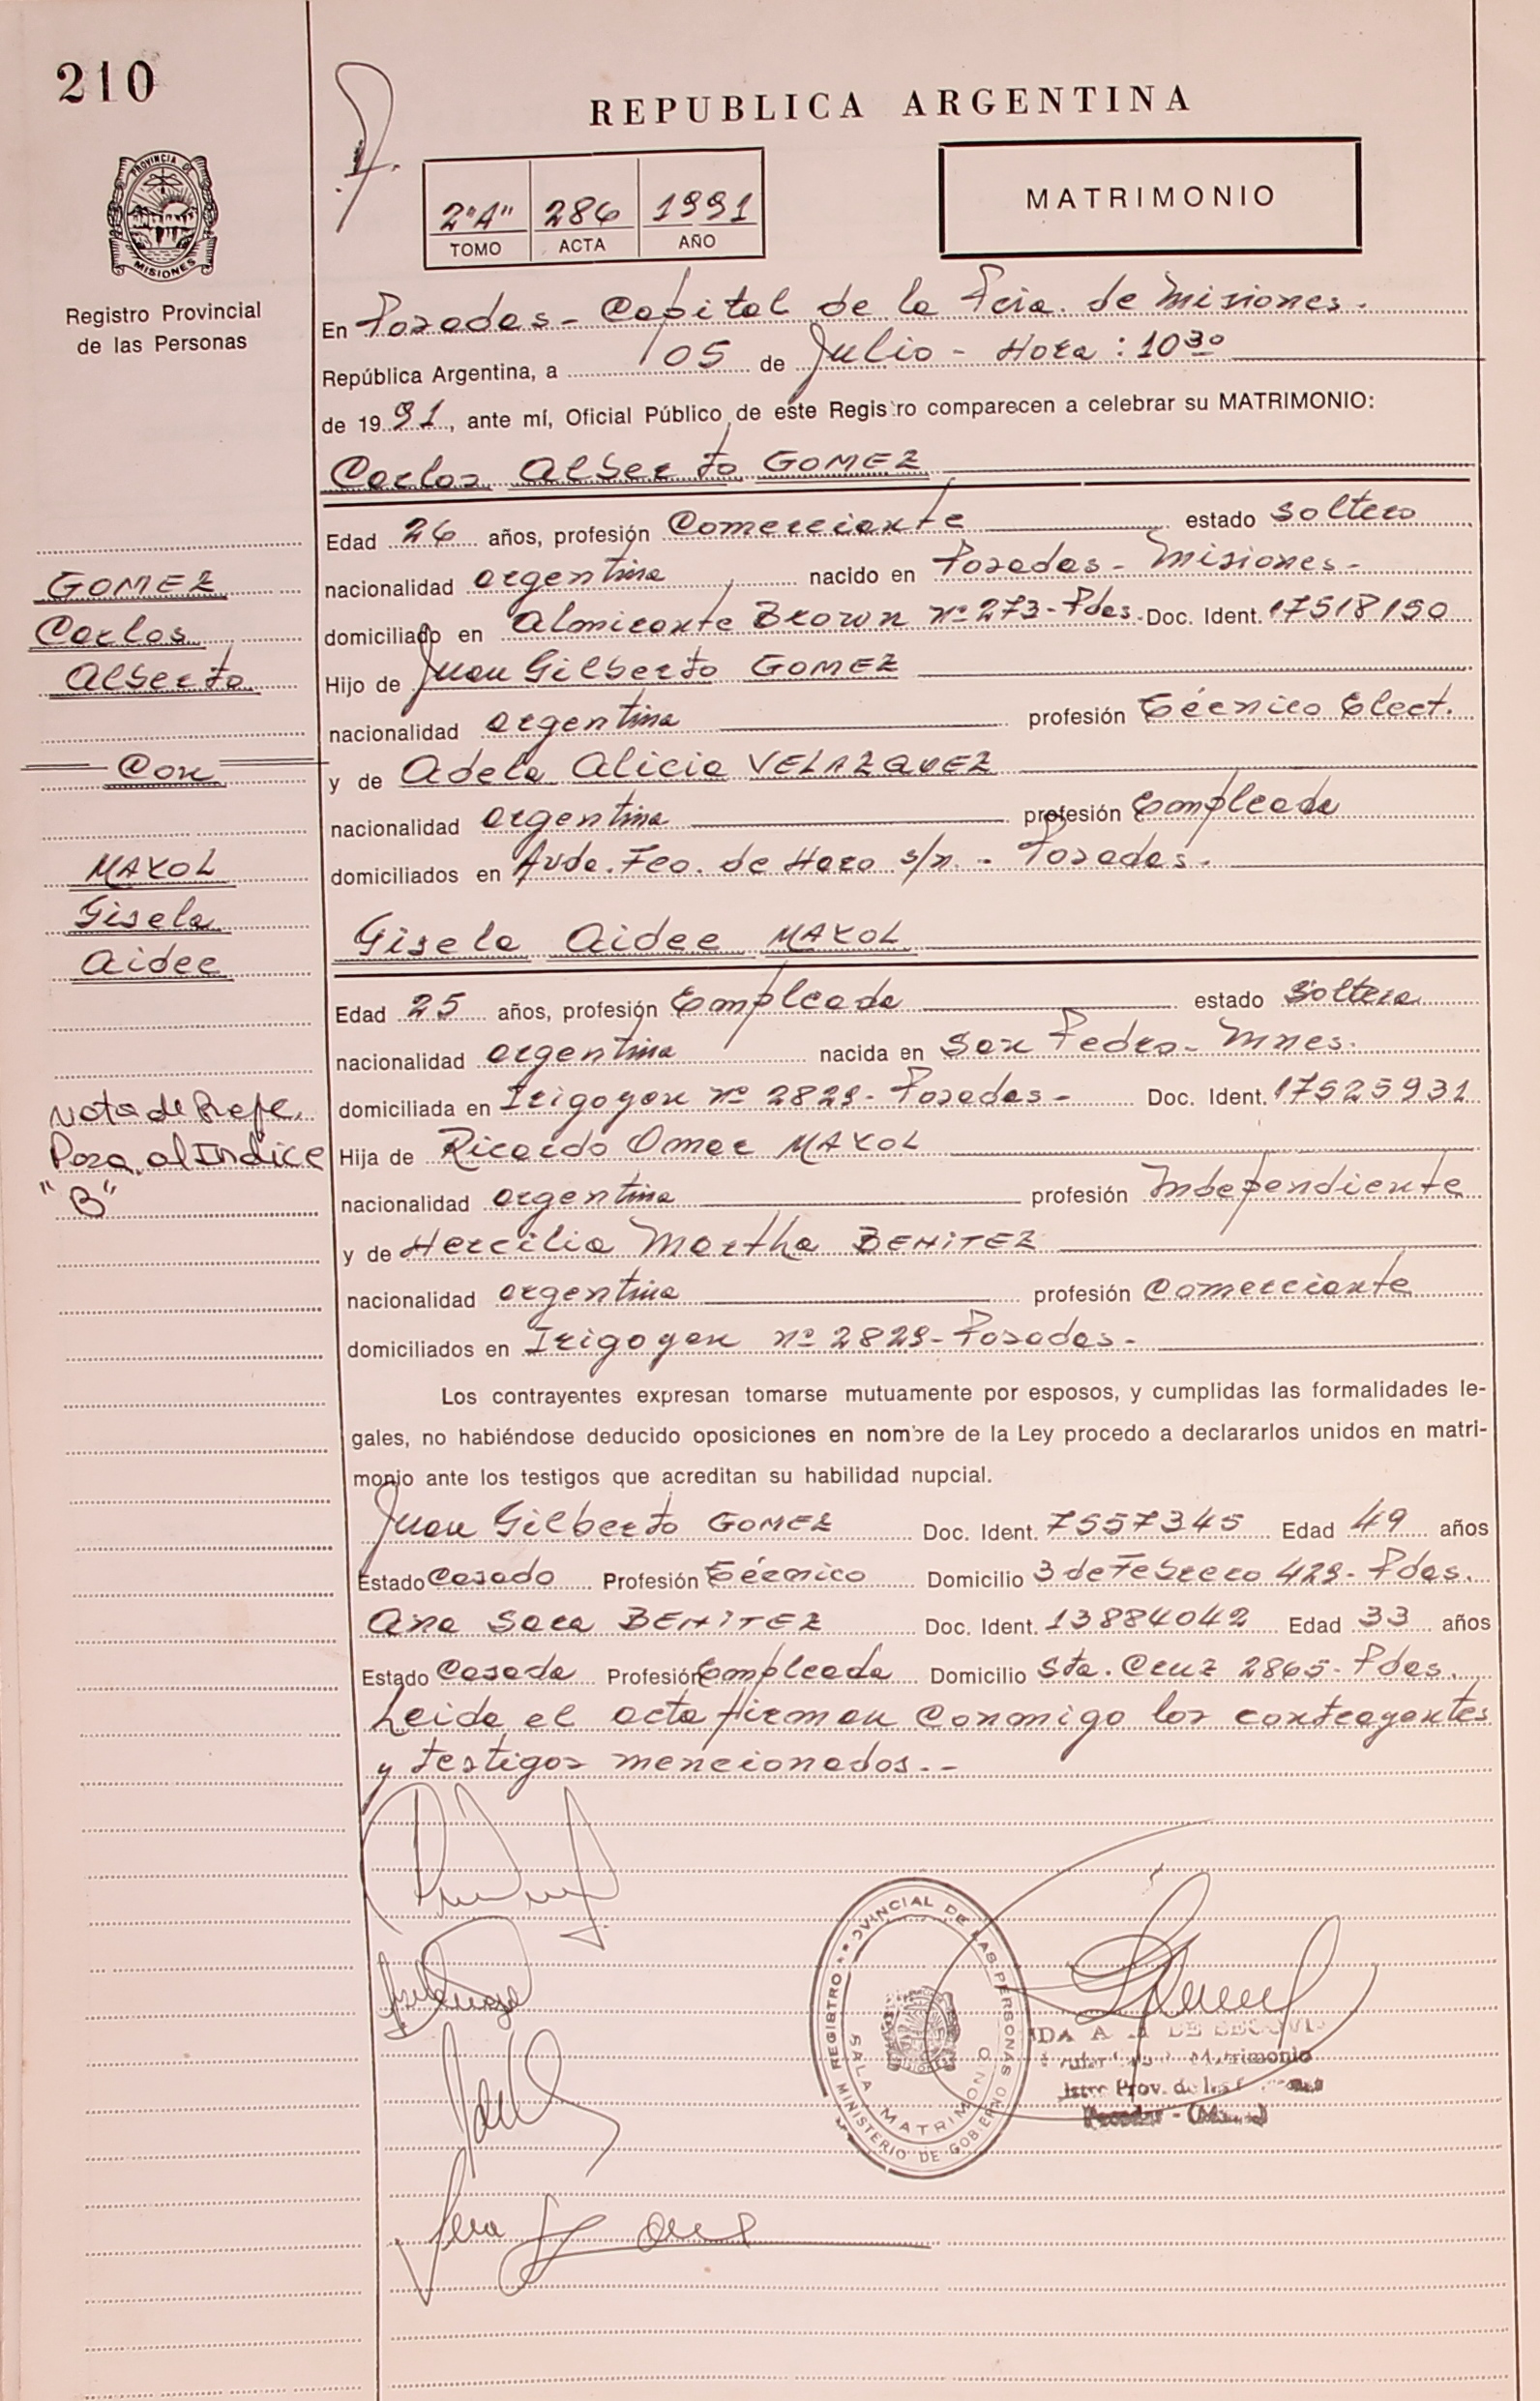 210
REPUBLICA ARGENTINA
PROVINCIA DE
MISIONES
Registro Provincial
de las Personas
2º"A" 286 1991
TOMO ACTA AÑO
MATRIMONIO
En Posadas - Capital de la Pcia. de Misiones.
República Argentina, a 05 de Julio - Hora : 10 30
de 1991, ante mí, Oficial Público de este Registro comparecen a celebrar su MATRIMONIO:
Carlos Alberto GOMEZ
Edad 26 años, profesión Comerciante estado soltero
nacionalidad argentina nacido en Posadas - Misiones -
domiciliado en Almirante Brown nº 273 - Pdas. Doc. Ident. 17518190
Hijo de Juan Gilberto GOMEZ
nacionalidad argentina profesión Técnico Elect.
y de Adela Alicia VELAZQUEZ
nacionalidad argentina profesión Empleada
domiciliados en Avda. Fco. de Haro s/n. - Posadas.
Gisela Aidee MAYOL
Edad 25 años, profesión Empleada estado soltera
nacionalidad argentina nacida en San Pedro - Mnes.
domiciliada en Irigoyen nº 2829 - Posadas - Doc. Ident. 17525931
Hija de Ricardo Omar MAYOL
nacionalidad argentina profesión Independiente
y de Hercilia Martha BENITEZ
nacionalidad argentina profesión Comerciante
domiciliados en Irigoyen nº 2829 - Posadas -
Los contrayentes expresan tomarse mutuamente por esposos, y cumplidas las formalidades le-
gales, no habiéndose deducido oposiciones en nombre de la Ley procedo a declararlos unidos en matri-
monio ante los testigos que acreditan su habilidad nupcial.
Juan Gilberto GOMEZ Doc. Ident. 7557345 Edad 49 años
Estado Casado Profesión Técnico Domicilio 3 de Febrero 429 - Pdas.
Ana Sara BENITEZ Doc. Ident. 13884042 Edad 33 años
Estado Casada Profesión Empleada Domicilio Sta. Cruz 2865 - Pdas.
Leida el acta firman conmigo los contrayentes
y testigos mencionados. -
GOMEZ
Carlos
Alberto
Con
MAYOL
Gisela
Aidee
Nota de Refe.
Pasa al Indice
"B"
REGISTRO PROVINCIAL DE LAS PERSONAS
SALA MATRIMONIO
MINISTERIO DE GOBIERNO
Matrimonio
Prov. de las